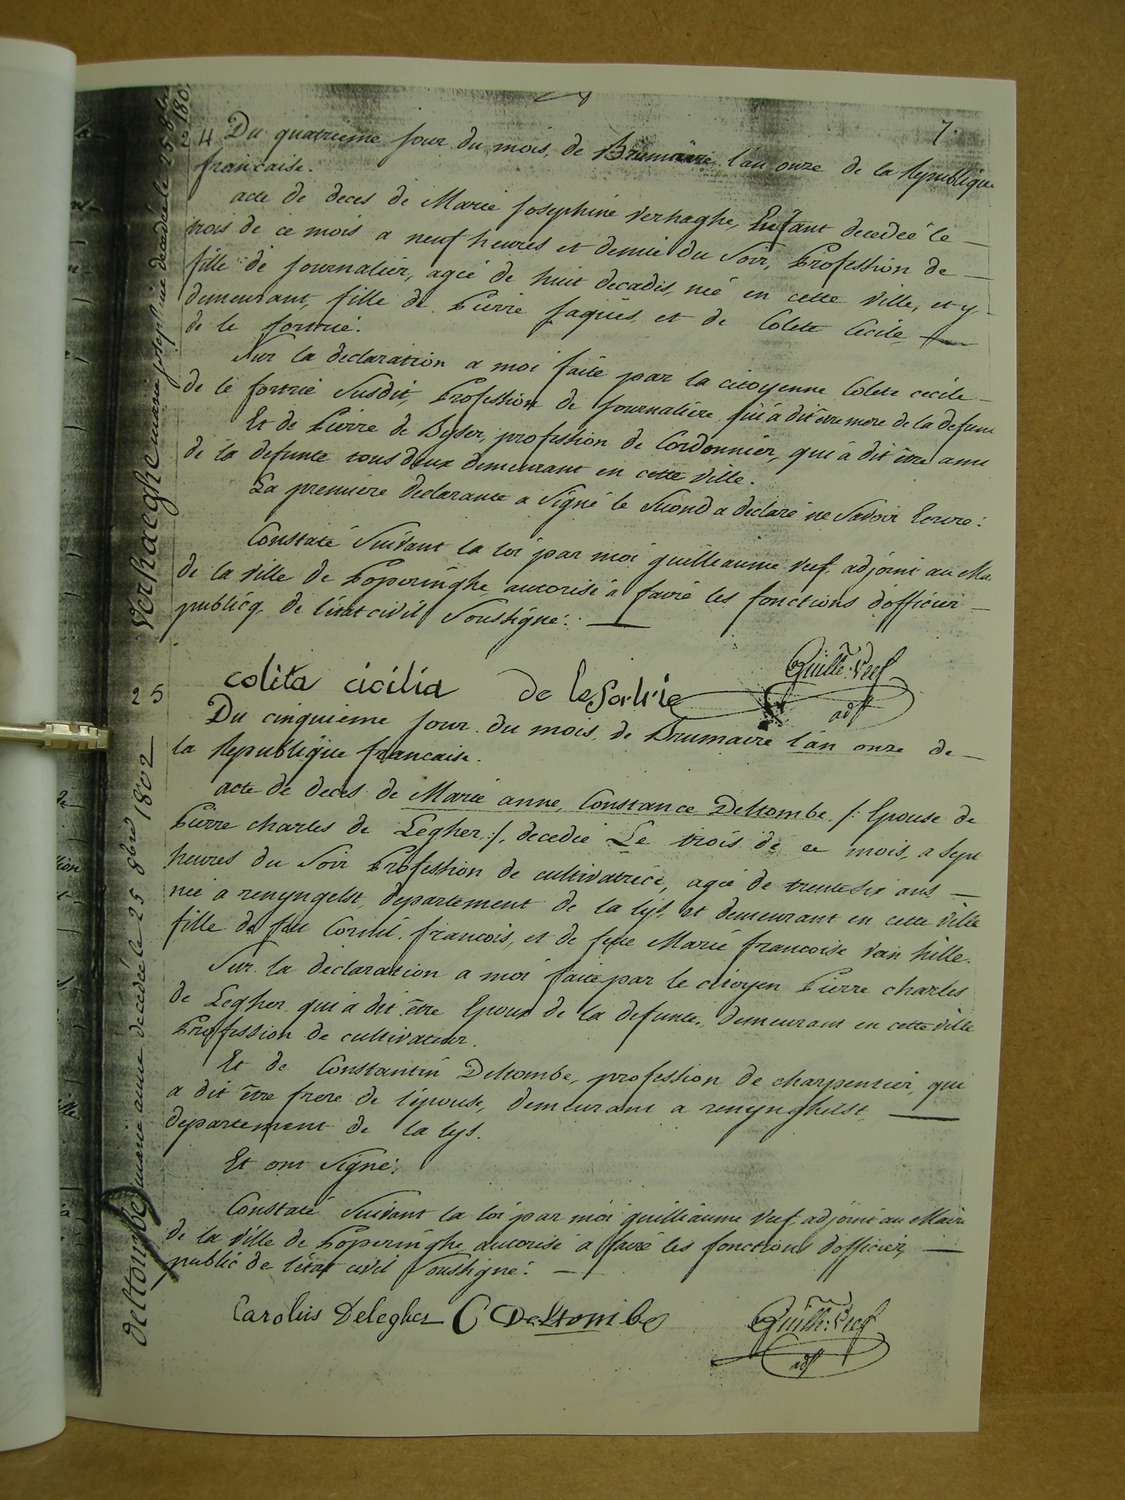 7.
24 Du quatrieme jour du mois de Brumaire l'an onze de la Republique
francaise.
acte de deces de Marie Josephine Verhaghe, Enfant decedeé le
trois de ce mois a neuf heures et demie du Soir, Profession de
fille de Journalier, ageé de huit decadis, neé en cette Ville, et y
demeurant, fille de Pierre Jaques et de Colete Cecile
de le fortrie.
Sur la declaration a moi faite par la citoyenne Colete cecile
de le fortrie Susdit, Profession de Journaliere qui à dit être mere de la defunte
Et de Pierre de Dyser, profession de Cordonnier, qui à dit être ami
de la defunte tous deux demeurant en cette Ville.
La premiere declarante a Signé le Second a declaré ne Savoir Ecrire:
Constaté Suivant la loi par moi guilleaume Vuf. adjoint au Mai
de la Ville de Poperinghe autorisé à faire les fonctions d'officier
publicq de l'état civil Soussigné:
colita cicilia de le Fortrie
Guille. Vuf
adjt
Verhaeghe marie josephine decedée le 25 8bre 1802
25
Du cinquieme jour du mois de Brumaire l'an onze de
la Republique francaise.
acte de deces de Marie anne, Constance Deltombe /: Epouse de
Pierre charles de Legher :/, decedeé Le trois de ce mois, a Sept
heures du Soir Profession de cultivatrice, ageé de trente six ans
neé a renyngelst, departement de la Lys, et demeurant en cette Ville
fille de feu Cornil. francois, et de feue Marie francoise Van hille.
Sur la declaration a moi faite par le citoyen Pierre charles
de Legher qui à dit être Epoux de la defunte, demeurant en cette Ville
Profession de cultivateur.
Et de Constantin Deltombe, profession de charpentier, qui
a dit être frere de l'épouse, demeurant a renyngelst
departement de la Lys.
Et ont Signé:
Constaté Suivant la loi par moi guilleaume Vuf. adjoint au Maire
de la Ville de Poperinghe autorisé à faire les fonctions d'officier
public de l'état civil Soussigné:
Carolus Delegher C Deltombe
Guille. Vuf
adjt
deltombe marie anne decedée le 25 8bre 1802